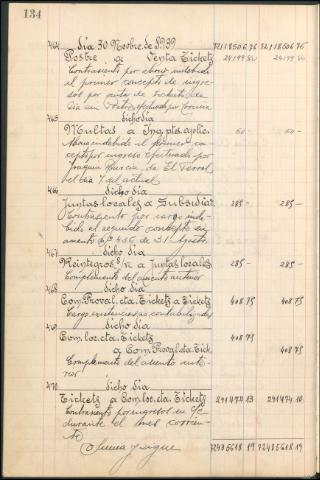 134
464 Día 30 Novbre. de 1939 72118506 76 72118506 76
Postre a Venta Tickets 24199 50 24199 50
Contrasiento por abono indebido
al primer concepto de ingre-
sos por venta de tickets de
465 dicho día
Multas a Ing. ptes. aplic. 50 - 50 -
Abono indebido al primer con-
cepto por ingreso efectuado por
Joaquin Murcia de El Ferrol,
el día 7 del actual
466 dicho día
Juntas locales a Subsidios 285 - 285 -
Contrasiento por cargo inde-
bido al segundo concepto
asiento nº 436 de 31 Agosto
467 dicho día
Reintegros s/n a Juntas locales 285 - 285 -
Complemento del asiento anterior
468 dicho día
Com. Proval. cta. Tickets a Tickets 408 75 408 75
Cargo existencias no contabilizadas
469 dicho día
Com. loc. cta. Tickets 408 75
a Com. Proval. cta. Tick. 408 75
Complemento del asiento ante-
rior
470 dicho día
Tickets a Com. loc. cta. Tickets 291474 10 291474 10
Contrasiento por ingresos en
durante el mes corrien-
te
Suma y sigue 72435618 19 72435618 19